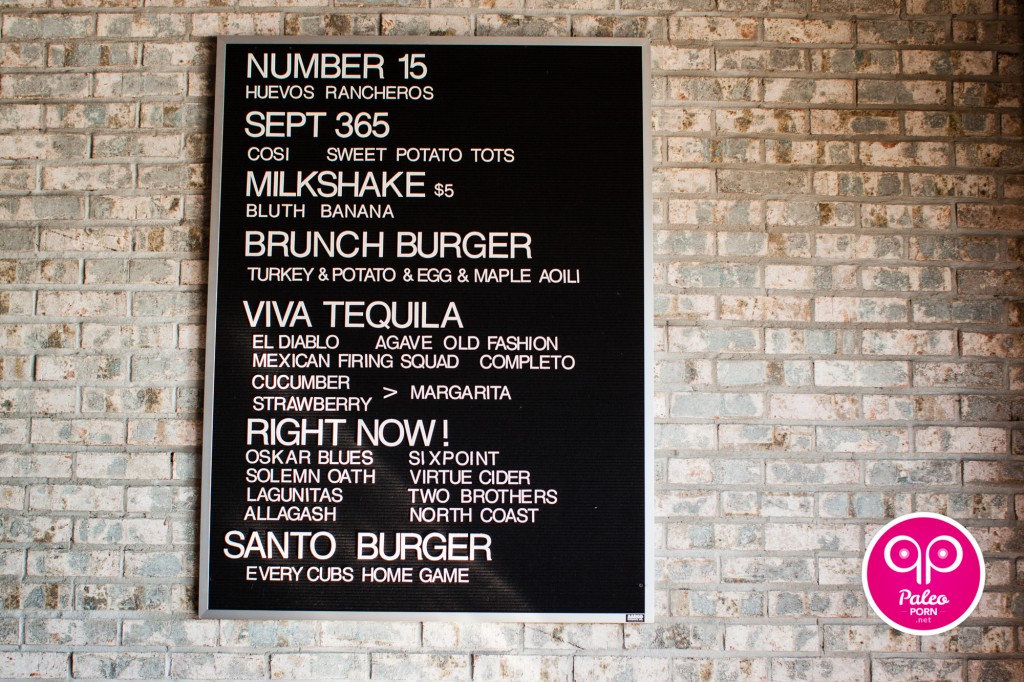 NUMBER 15
HUEVOS RANCHEROS
SEPT 365
COSI SWEET POTATO TOTS
MILKSHAKE $5
BLUTH BANANA
BRUNCH BURGER
TURKEY & POTATO & EGG & MAPLE AOILI
VIVA TEQUILA
EL DIABLO AGAVE OLD FASHION
MEXICAN FIRING SQUAD COMPLETO
CUCUMBER
STRAWBERRY > MARGARITA
RIGHT NOW!
OSKAR BLUES SIXPOINT
SOLEMN OATH VIRTUE CIDER
LAGUNITAS TWO BROTHERS
ALLAGASH NORTH COAST
SANTO BURGER
EVERY CUBS HOME GAME
Paleo
PORN
.net